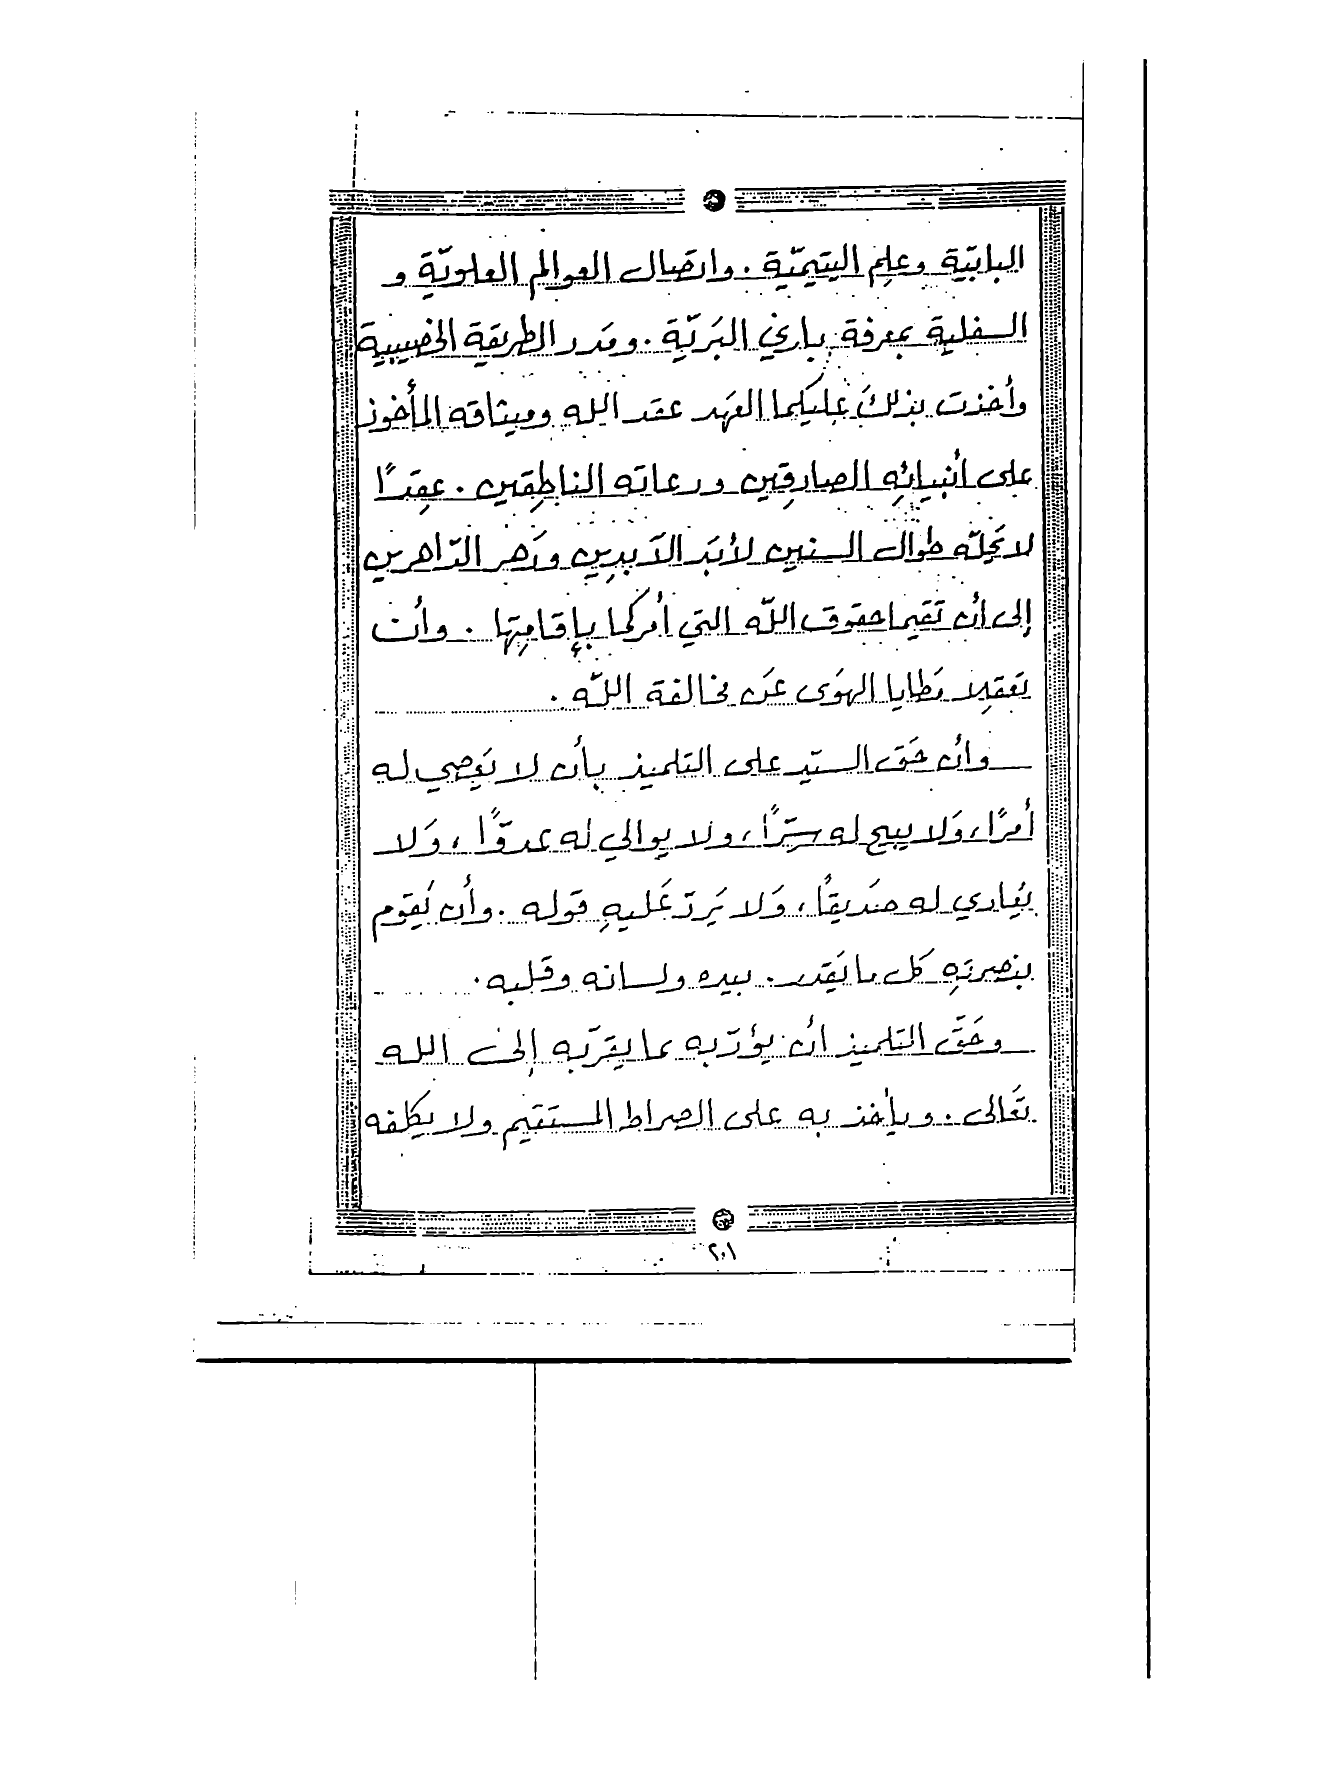 البابيّة وعلم اليتيميّة . واتصال العوالم العلويّة و
السفلية بمعرفة باري البَريّة . ومَدد الطريقة الخصيبية
وأخذت بذلكَ عليكما العَهد عقد الله وميثاقه المأخوذ
على أنبيائِهِ الصادقِين ودعاته الناطِقين . عقِدًا
لا تحِلّه طوال السنين لأبَد الآبدِين ودَهر الدّاهرين
إلى أن تقيما حقوق الله التي أمركما بإقامِتها . وأن
تعقِلا مَطايا الهَوَى عَن مخالفة اللّه .
وأن حَق السيّد على التلميذ بأن لا يَعصِي له
أمرًا، وَلا يبيح له سِرًّا، ولا يوالي له عدوًّا، وَلا
يُعادي له صَديقًا، وَلا يَردّ عَليهِ قوله . وأن يَقوم
بنصرتهِ كل ما يَقدر . بيده ولسانه وقلبه .
وحَقّ التلميذ أن يؤدّبه بما يقرّبه إلى الله
تَعالى . ويأخذ به على الصراط المستقيم ولا يكلفه
٢٠١